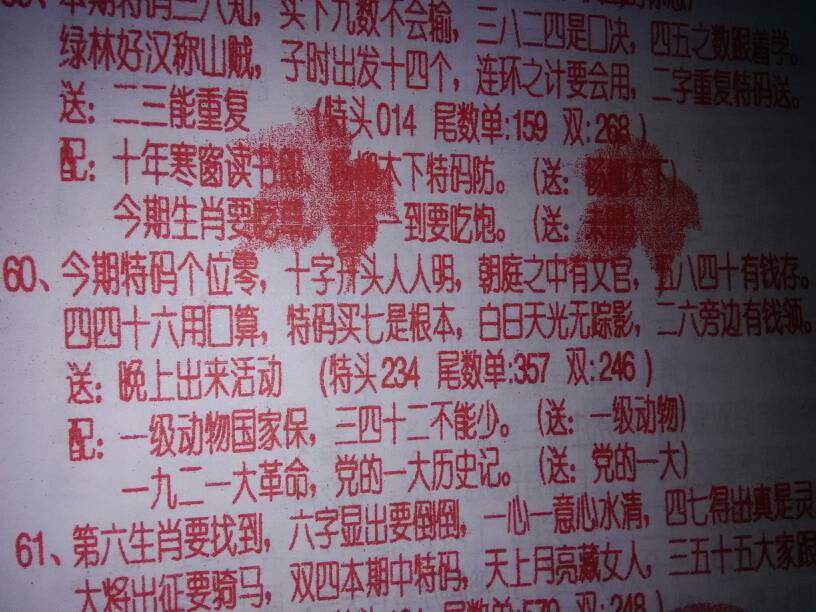 本期特码三八知，买下九数不会输，三八二四是□决，四五之数跟着学。
绿林好汉称山贼，子时出发十四个，连环之计要会用，二字重复特码送。
送：二三能重复 (特头014 尾数单:159 双:268)
配：十年寒窗读书 木下特码防。(送： 木下)
今期生肖要 一到要吃饱。(送：
60、今期特码个位零，十字开头人人明，朝庭之中有文官，五八四十有钱存。
四四十六用□算，特码买七是根本，白日天光无踪影，二六旁边有钱领。
送：晚上出来活动 (特头234 尾数单:357 双:246)
配：一级动物国家保，三四十二不能少。(送：一级动物)
一九二一大革命，党的一大历史记。(送：党的一大)
61、第六生肖要找到，六字显出要倒倒，一心一意心水清，四七得出真是灵
大将出征要骑马，双四本期中特码，天上月亮藏女人，三五十五大家跟
双:248)